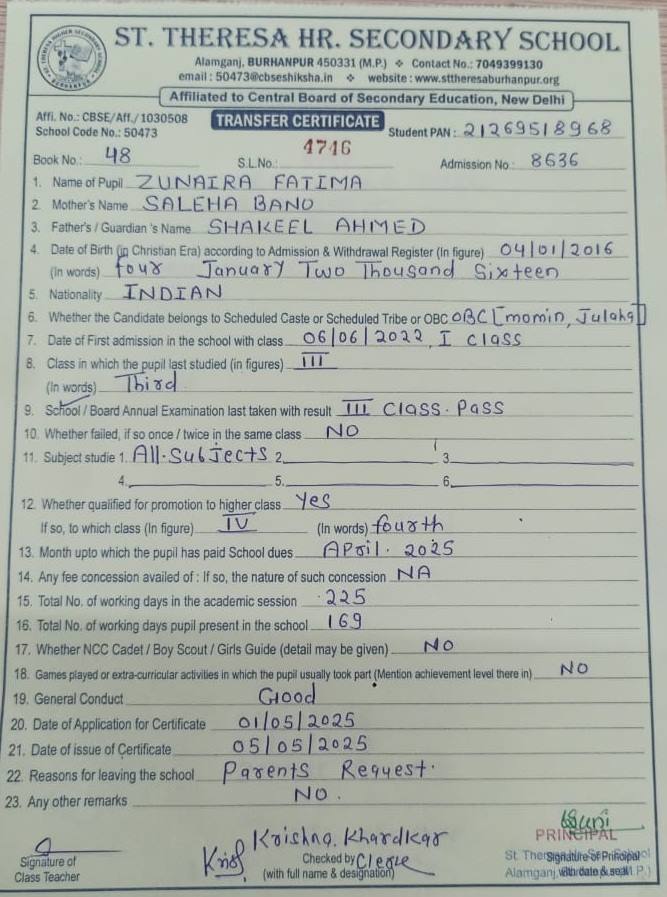 ST. THERESA HR. SECONDARY SCHOOL
Alamganj, BURHANPUR 450331 (M.P.) ❖ Contact No.: 7049399130
email : 50473@cbseshiksha.in ❖ website : www.sttheresaburhanpur.org
Affiliated to Central Board of Secondary Education, New Delhi
Affi. No.: CBSE/Aff./1030508 TRANSFER CERTIFICATE Student PAN : 21269518968
School Code No.: 50473
Book No.: 48 S.L.No.: 4746 Admission No : 8636
1. Name of Pupil ZUNAIRA FATIMA
2. Mother's Name SALEHA BANO
3. Father's / Guardian 's Name SHAKEEL AHMED
4. Date of Birth (in Christian Era) according to Admission & Withdrawal Register (In figure) 04/01/2016
(in words) four January Two Thousand Sixteen
5. Nationality INDIAN
6. Whether the Candidate belongs to Scheduled Caste or Scheduled Tribe or OBC OBC [momin, Julaha]
7. Date of First admission in the school with class 06/06/2022, I class
8. Class in which the pupil last studied (in figures) III
(in words) Third
9. School / Board Annual Examination last taken with result III Class. Pass
10. Whether failed, if so once / twice in the same class NO
11. Subject studie 1. All.Subjects 2. 3.
4. 5. 6.
12. Whether qualified for promotion to higher class Yes
If so, to which class (In figure) IV (In words) fourth
13. Month upto which the pupil has paid School dues April. 2025
14. Any fee concession availed of : If so, the nature of such concession NA
15. Total No. of working days in the academic session 225
16. Total No. of working days pupil present in the school 169
17. Whether NCC Cadet / Boy Scout / Girls Guide (detail may be given) NO
18. Games played or extra-curricular activities in which the pupil usually took part (Mention achievement level there in) NO
19. General Conduct Good
20. Date of Application for Certificate 01/05/2025
21. Date of issue of Certificate 05/05/2025
22. Reasons for leaving the school Parents Request.
23. Any other remarks NO.
Krishna. Khardkar
PRINCIPAL
Signature of
Class Teacher
Checked by Clerk
(with full name & designation)
Signature of Principal
With date & seal
St. Theresa Hr. Sec. School
Alamganj, Burhanpur (M.P.)